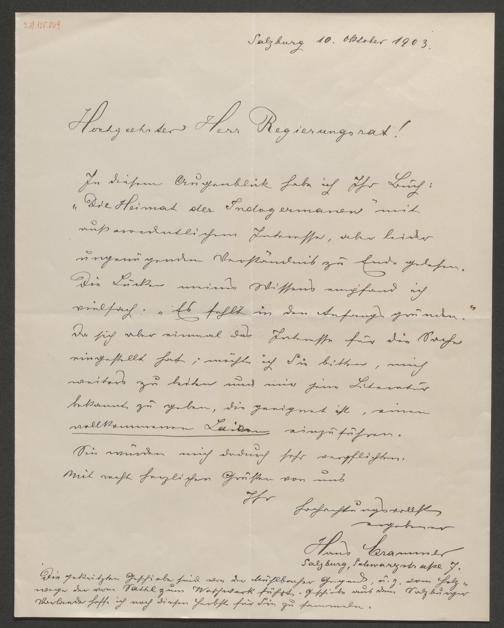 Salzburg 10. Oktober 1903.
Hochgeehrter Herr Regierungsrat!
In diesem Augenblick habe ich Ihr Buch:
„Die Heimat der Indogermanen" mit
außerordentlichem Interesse, aber leider
ungenügendem Verständnis zu Ende gelesen.
Die Lücken meines Wissens empfand ich
vielfach. „Es fehlt in den Anfangsgründen."
Da sich aber einmal das Interesse für die Sache
eingestellt hat, möchte ich Sie bitten, mich
weiters zu leiten und mir jene Literatur
bekannt zu geben, die geeignet ist, einen
vollkommenen Laien einzuführen.
Sie würden mich dadurch sehr verpflichten.
Mit recht herzlichen Grüßen von uns
Ihr
hochachtungsvollst
ergebener
Hans Crammer
Salzburg, Schwarzstraße 7.
Die gekritzten Geschiebe sind von der Mühlbacher Gegend, u. z. vom
wege der vom Sattel zum führt. Geschiebe aus dem Salzburger
Vorlande hoffe ich noch diesen Herbst für Sie zu sammeln.